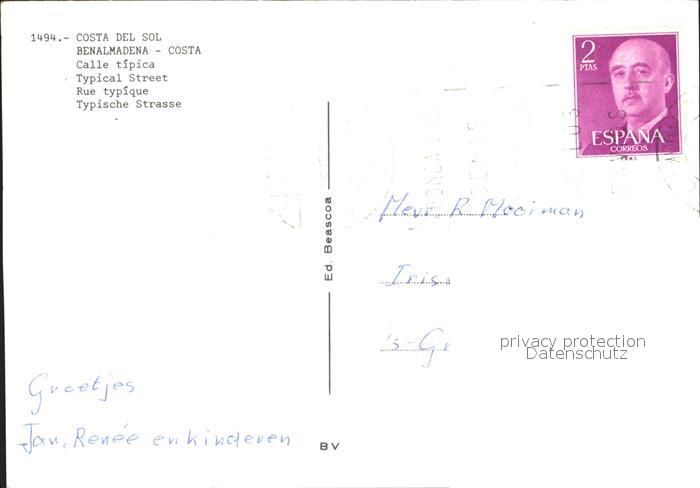 1494.- COSTA DEL SOL
BENALMADENA - COSTA
Calle típica
Typical Street
Rue typíque
Typische Strasse
2
PTAS
ESPAÑA
CORREOS
Ed. Beascoa
Mevr R. Mooiman
Iris
's-Gr
privacy protection
Datenschutz
Groetjes
Jan, Renée en kinderen
BV